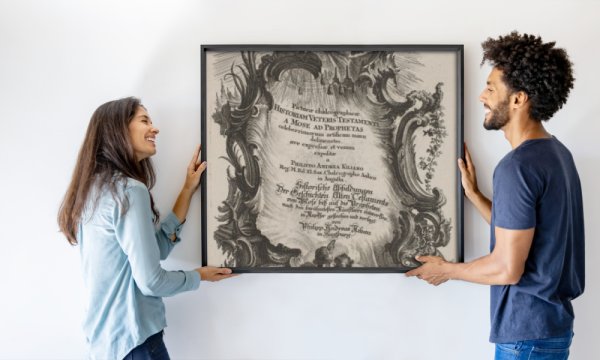 Picturæ chalcographicæ
HISTORIAM VETERIS TESTAMENTI
A MOSE AD PROPHETAS
celeberrimorum artificum manu
delineatæ,
ære expressæ et venum
expositæ
a
PHILIPPO ANDREA KILIANO
Reg. M. Pol. El. Sax. Chalcographo Aulico
in Augusta.
Historische Abbildungen
Der Geschichten Alten Testaments
von Mose biß auf die Propheten
nach den
in Kupffer gestochen und verlegt
von
Philipp Andreas Kilian
in Augspurg.